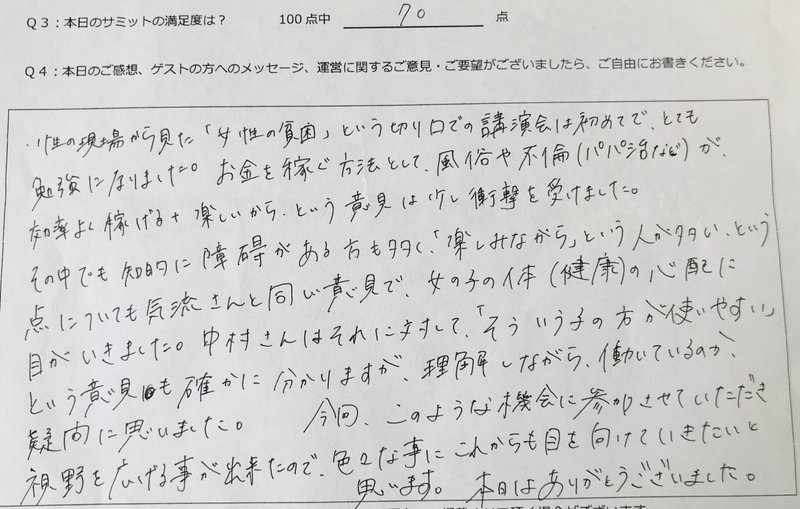 Q3：本日のサミットの満足度は？ 100点中 70 点
Q4：本日のご感想、ゲストの方へのメッセージ、運営に関するご意見・ご要望がございましたら、ご自由にお書きください。
・性の現場から見た「女性の貧困」という切り口での講演会は初めてで、とても
勉強になりました。お金を稼ぐ方法として、風俗や不倫(パパ活など)が、
効率よく稼げる＋楽しいから、という意見は少し衝撃を受けました。
その中でも知的に障碍がある方も多く、「楽しみながら」という人が多い、という
点についても気流さんと同じ意見で、女の子の体(健康)の心配に
目がいきました。中村さんはそれに対して、「そういう子の方が使いやすい」
という意見も確かに分かりますが、理解しながら、働いているのか、
疑問に思いました。 今回、このような機会に参加させていただき
視野を広げる事が出来たので、色々な事にこれからも目を向けていきたいと
思います。本日はありがとうございました。